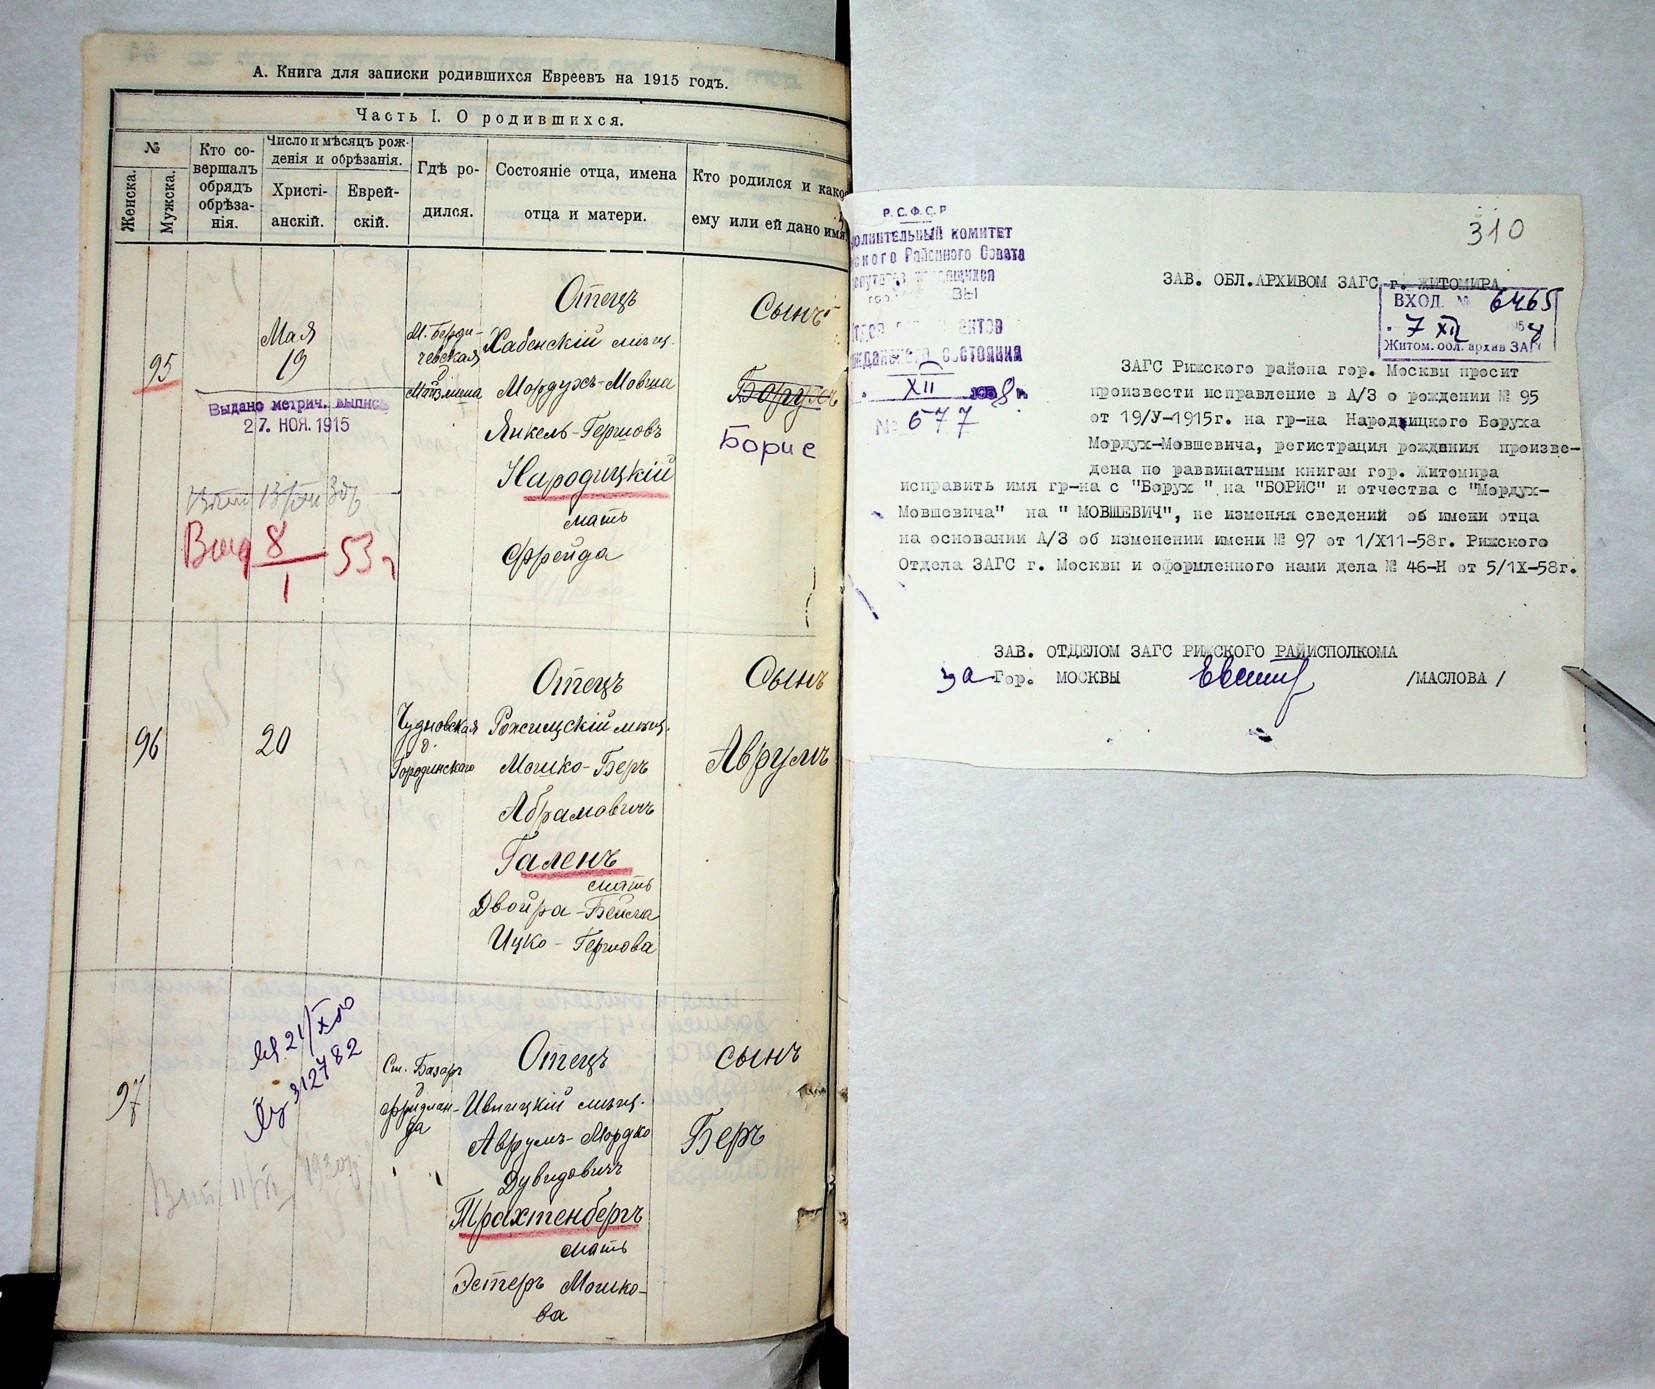 А. Книга для записки родившихся Евреевъ на 1915 годъ.
Часть I. О родившихся.
№
Женска.
Мужска.
Кто со-
вершалъ
обрядъ
обрѣза-
нія.
Число и мѣсяцъ рож-
денія и обрѣзанія.
Христі-
анскій.
Еврей-
скій.
Гдѣ ро-
дился.
Состояніе отца, имена
отца и матери.
Кто родился и како
ему или ей дано имя
95
Мая
19
М. Берди-
чевская
д.
Выдано метрич. выпись
27. НОЯ. 1915
13/VIII 30г
8/I 53г
Отецъ
Хабенскій мѣщ.
Мордухъ-Мовша
Янкель-Гершовъ
Народицкій
мать
Фрейда
Сынъ
Борухъ
Борис
96
20
Чудновская
д.
Городинскаго
Отецъ
Рожищскій мѣщ.
Мошко-Беръ
Абрамовичъ
Галенъ
мать
Двойра-Бейла
Ицко-Гершова
Сынъ
Аврумъ
97
21/X
312782
11/VI 1930г.
Ст. Базаръ
д
Фридлан-
да
Отецъ
Ивницкій мѣщ.
Аврумъ-Мордко
Дувидовичъ
Трахтенбергъ
мать
Эстеръ Мошко-
ва
сынъ
Беръ
Р.С.Ф.С.Р
олнительный комитет
ского Районного Совета
XII 1958 г.
№ 677
310
ЗАВ. ОБЛ.АРХИВОМ ЗАГС г. ЖИТОМИРА
ВХОД. № 6465
" 7 XII 1958
Житом. обл. архив ЗАГС
ЗАГС Рижского района гор. Москвы просит
произвести исправление в А/З о рождении № 95
от 19/У-1915г. на гр-на Народицкого Боруха
Мордух-Мовшевича, регистрация рождения произве-
дена по раввинатным книгам гор. Житомира
исправить имя гр-на с "Борух " на "БОРИС" и отчества с "Мордух-
Мовшевича" на " МОВШЕВИЧ", не изменяя сведений об имени отца
на основании А/З об изменении имени № 97 от 1/X11-58г. Рижского
Отдела ЗАГС г. Москвы и оформленного нами дела № 46-Н от 5/1X-58г.
ЗАВ. ОТДЕЛОМ ЗАГС РИЖСКОГО РАЙИСПОЛКОМА
за Гор. МОСКВЫ /МАСЛОВА /